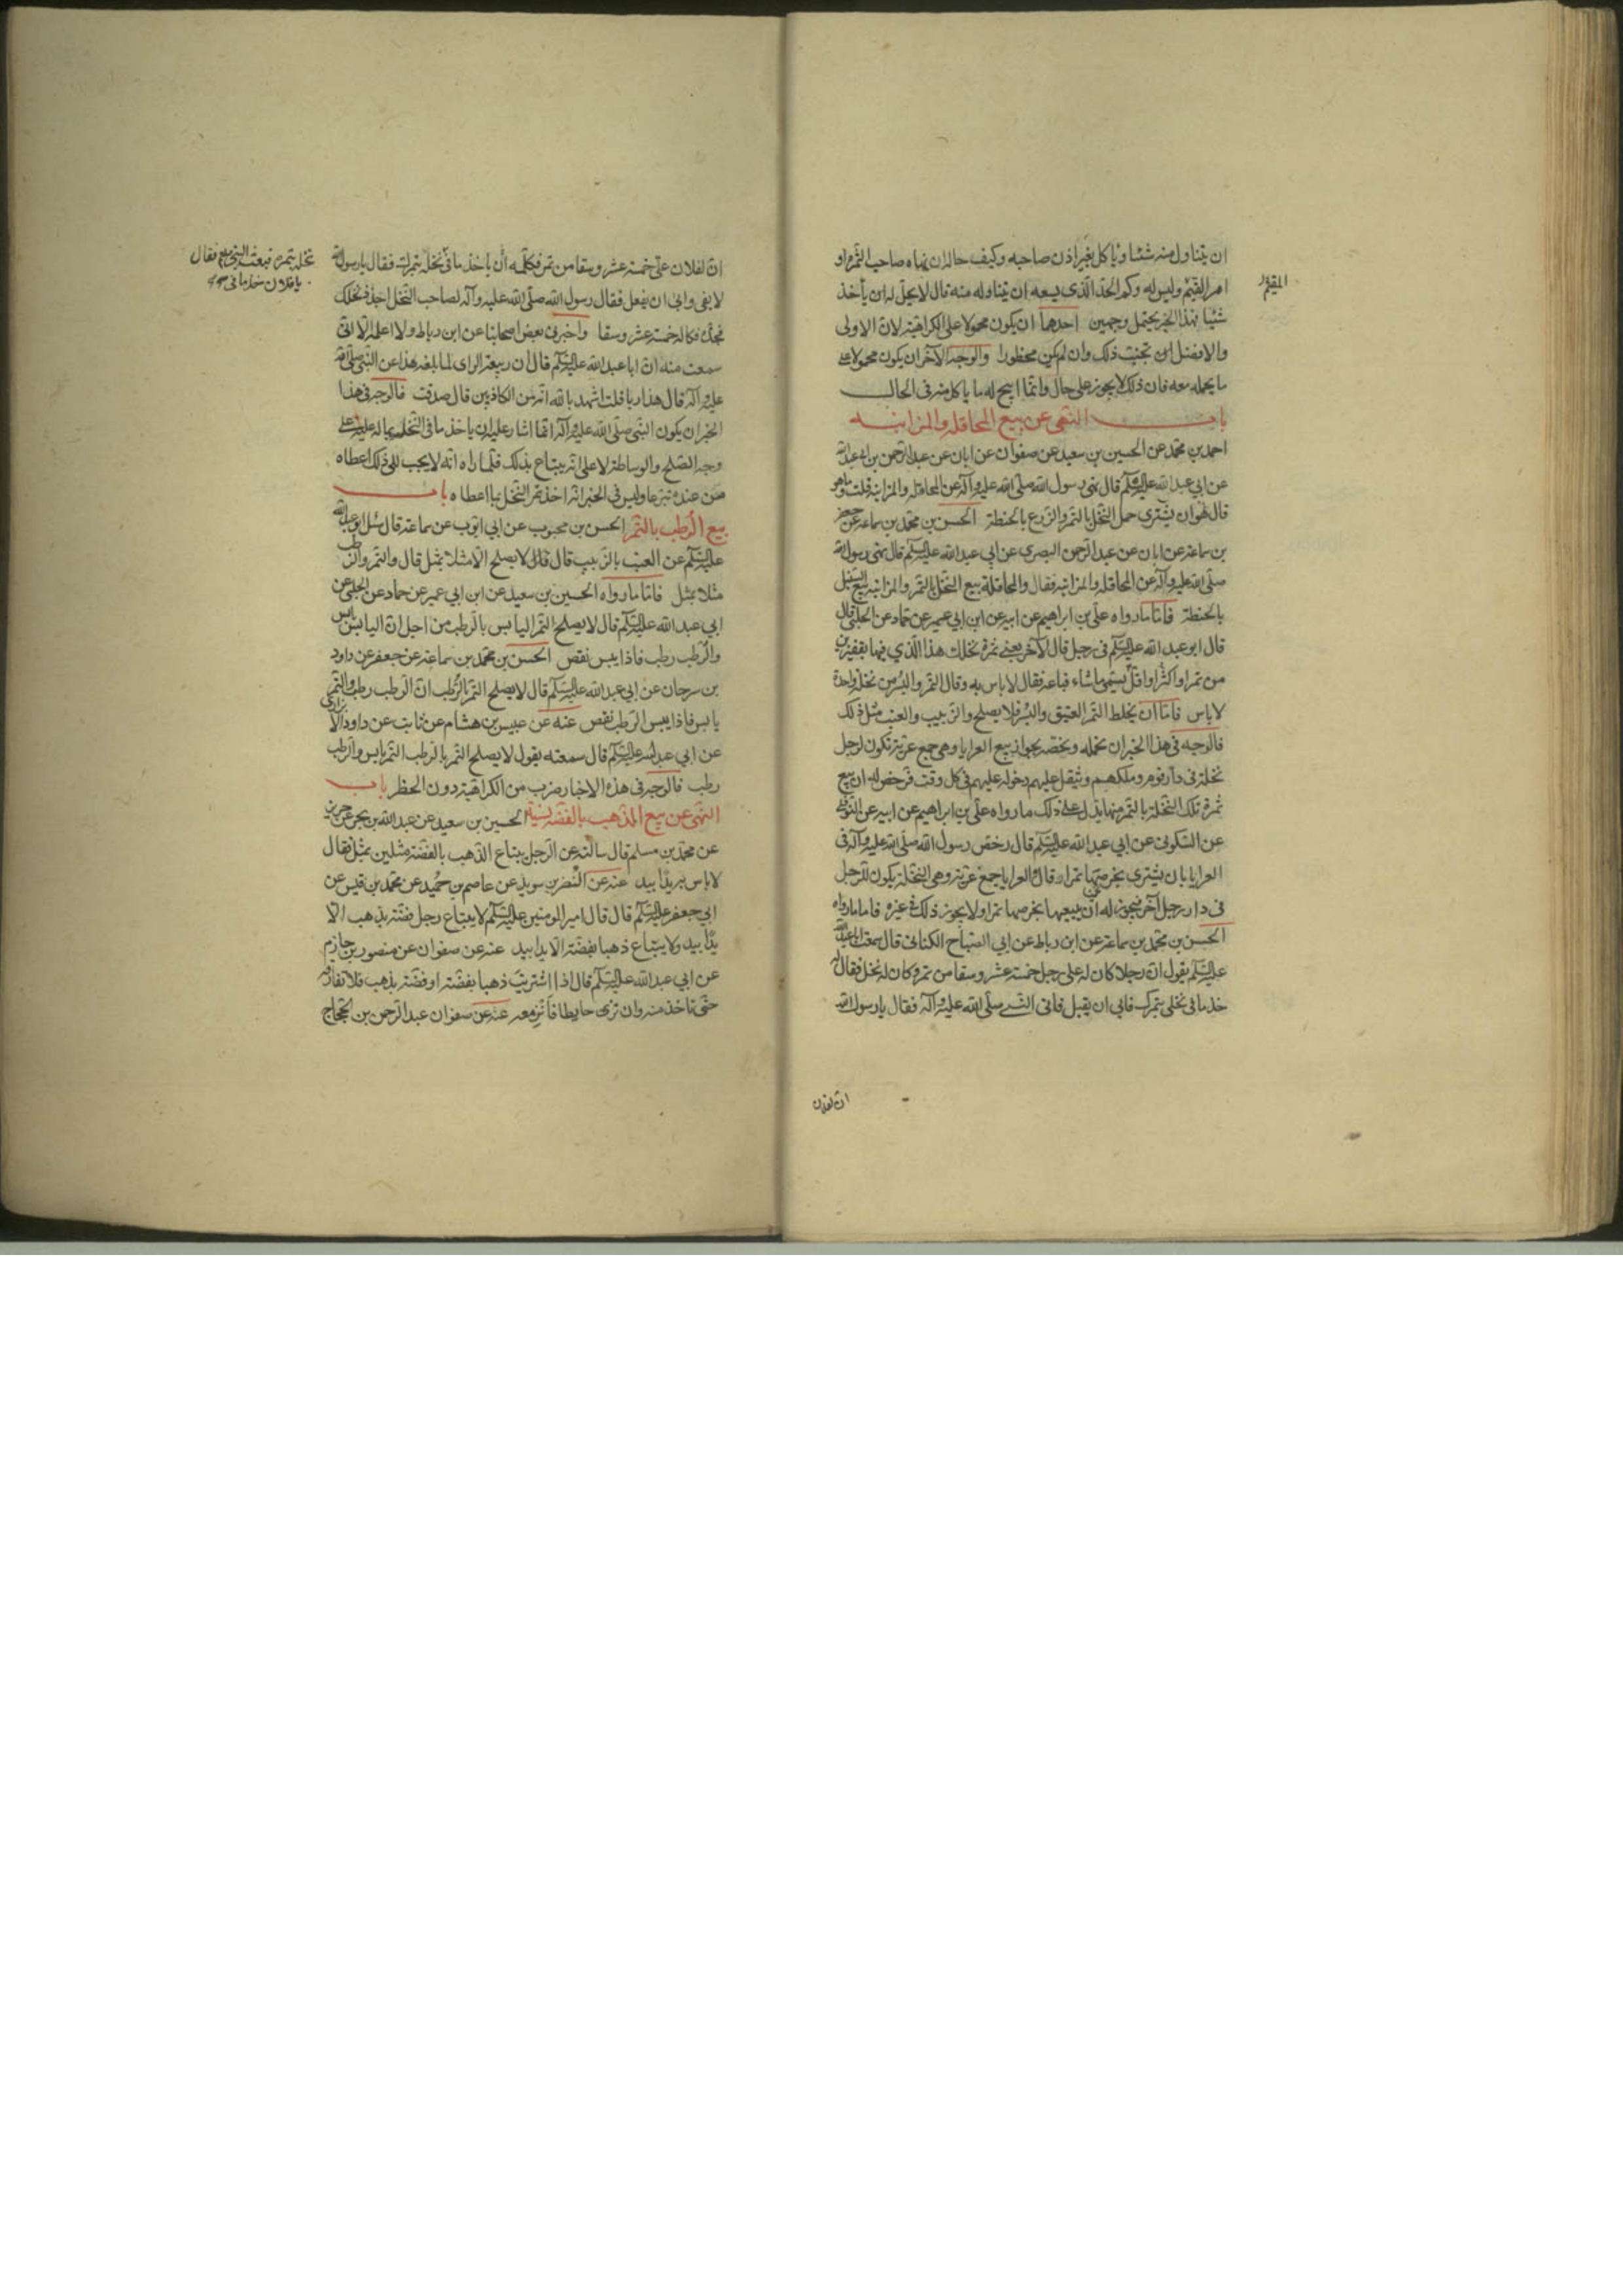 ان يتناول منه شيئا وياكل بغير اذن صاحبه وكيف حاله ان نهاه صاحب الثمرة او
امر القيم وليس له وكم الحد الذي يسعه ان يتناوله منه قال لا يحل له ان يأخذ
شيئا فهذا الخبر يحتمل وجهين احدهما ان يكون محمولا على الكراهية لان الاولى
والافضل ان تجنب ذلك وان لم يكن محظورا والوجه الآخر ان يكون محمولا على
ما يحمله معه فان ذلك لا يجوز على حال وانما ابيح له ما ياكل منه في الحال
باب النهي عن بيع المحاقلة والمزابنة
احمد بن محمد عن الحسين بن سعيد عن صفوان عن ابان عن عبد الرحمن بن ابي عبد الله
عن ابي عبد الله عليه السلم قال نهى رسول الله صلى الله عليه وآله عن المحاقلة والمزابنة قلت وما هو
قال هو ان يشترى حمل النخل بالتمر والزرع بالحنطة الحسن بن محمد بن سماعة عن جعفر
بن سماعة عن ابان عن عبد الرحمن البصري عن ابي عبد الله عليه السلم قال نهى رسول الله
صلى الله عليه وآله عن المحاقلة والمزابنة فقال والمحاقلة بيع النخل بالتمر والمزابنة بيع السنبل
بالحنطة فاما ما رواه علي بن ابراهيم عن ابيه عن ابن ابي عمير عن حماد عن الحلبي قال
قال ابو عبد الله عليه السلم في رجل قال لآخر بعني ثمرة نخلك هذا الذي فيها بقفيزين
من تمر او اكثر او اقل يسمي ما شاء فباعه فقال لا باس به وقال التمر والبسر من نخلة واحدة
لا باس فاما ان يخلط التمر العتيق والبسر فلا يصلح والزبيب والعنب مثل ذلك
فالوجه في هذا الخبر ان نحمله ونخصه بجواز بيع العرايا وهي جمع عرية تكون لرجل
نخلة في دار قوم وملكهم ويثقل عليهم دخوله عليهم في كل وقت فرخص له ان يبيع
ثمرة تلك النخلة بالتمر منها يدل على ذلك ما رواه علي بن ابراهيم عن ابيه عن النوفلي
عن السكوني عن ابي عبد الله عليه السلم قال رخص رسول الله صلى الله عليه وآله في
العرايا بان يشترى بخرصها تمرا وقال والعرايا جمع عرية وهي النخلة يكون للرجل
في دار رجل آخر فيجوز له ان يبيعها بخرصها تمرا ولا يجوز ذلك في غيره فاما ما رواه
الحسن بن محمد بن سماعة عن ابن رباط عن ابي الصباح الكناني قال سمعت ابا عبد الله
عليه السلم يقول ان رجلا كان له على رجل خمسة عشر وسقا من تمر وكان له نخل فقال له
خذ ما في نخلي بتمرك فابى ان يقبل فاتى النبي صلى الله عليه وآله فقال يا رسول الله
ان لفلان
ان لفلان على خمسة عشر وسقا من تمر فكلمه ان ياخذ ما في نخله بتمرك فقال يا رسول الله
نخله بتمره فبعث النبي صلع فقال
يا فلان خذ ما في
لا يفي وابى ان يفعل فقال رسول الله صلى الله عليه وآله لصاحب النخل اجذذ نخلك
فجذه فكاله خمسة عشر وسقا واخبرني بعض اصحابنا عن ابن رباط ولا اعلم الا اني
سمعت منه ان ابا عبد الله عليه السلم قال ان ربيعة الراى لما بلغه هذا عن النبي صلى الله
عليه وآله قال هذا ربا قلت اشهد بالله انه من الكاذبين قال صدقت فالوجه في هذا
الخبر ان يكون النبي صلى الله عليه وآله انما اشار عليه ان ياخذ ما في النخلة بما له عليه على
وجه الصلح والوساطة لا على انه يبتاع بذلك فلما راه انه لا يجيب الى ذلك اعطاه
من عنده تبرعا وليس في الخبر انه اخذ تمر النخل بما اعطاه باب
بيع الرطب بالتمر الحسن بن محبوب عن ابي ايوب عن سماعة قال سئل ابو عبد الله
عليه السلم عن العنب بالزبيب قال فقال لا يصلح الا مثلا بمثل قال والتمر والرطب
مثلا بمثل فاما ما رواه الحسين بن سعيد عن ابن ابي عمير عن حماد عن الحلبي عن
ابي عبد الله عليه السلم قال لا يصلح التمر اليابس بالرطب من اجل ان اليابس يابس
والرطب رطب فاذا يبس نقص الحسن بن محمد بن سماعة عن جعفر عن داود
بن سرحان عن ابي عبد الله عليه السلم قال لا يصلح التمر بالرطب ان الرطب رطب والتمر
يابس فاذا يبس الرطب نقص عنه عن عبيس بن هشام عن ثابت عن داود الابزاري
عن ابي عبد الله عليه السلم قال سمعته يقول لا يصلح التمر بالرطب التمر يابس والرطب
رطب فالوجه في هذه الاخبار ضرب من الكراهية دون الحظر باب
النهي عن بيع الذهب بالفضة نسية الحسين بن سعيد عن عبد الله بن بحر عن حريز
عن محمد بن مسلم قال سالته عن الرجل يبتاع الذهب بالفضة مثلين بمثل فقال
لا باس به يدا بيد عنه عن النضر بن سويد عن عاصم بن حميد عن محمد بن قيس عن
ابي جعفر عليه السلم قال قال امير المومنين عليه السلم لا يبتاع رجل فضة بذهب الا
يدا بيد ولا يبتاع ذهبا بفضة الا يدا بيد عنه عن صفوان عن منصور بن حازم
عن ابي عبد الله عليه السلم قال اذا اشتريت ذهبا بفضة او فضة بذهب فلا تفارقه
حتى تاخذ منه وان نزى حايطا فانز معه عنه عن صفوان عن عبد الرحمن بن الحجاج